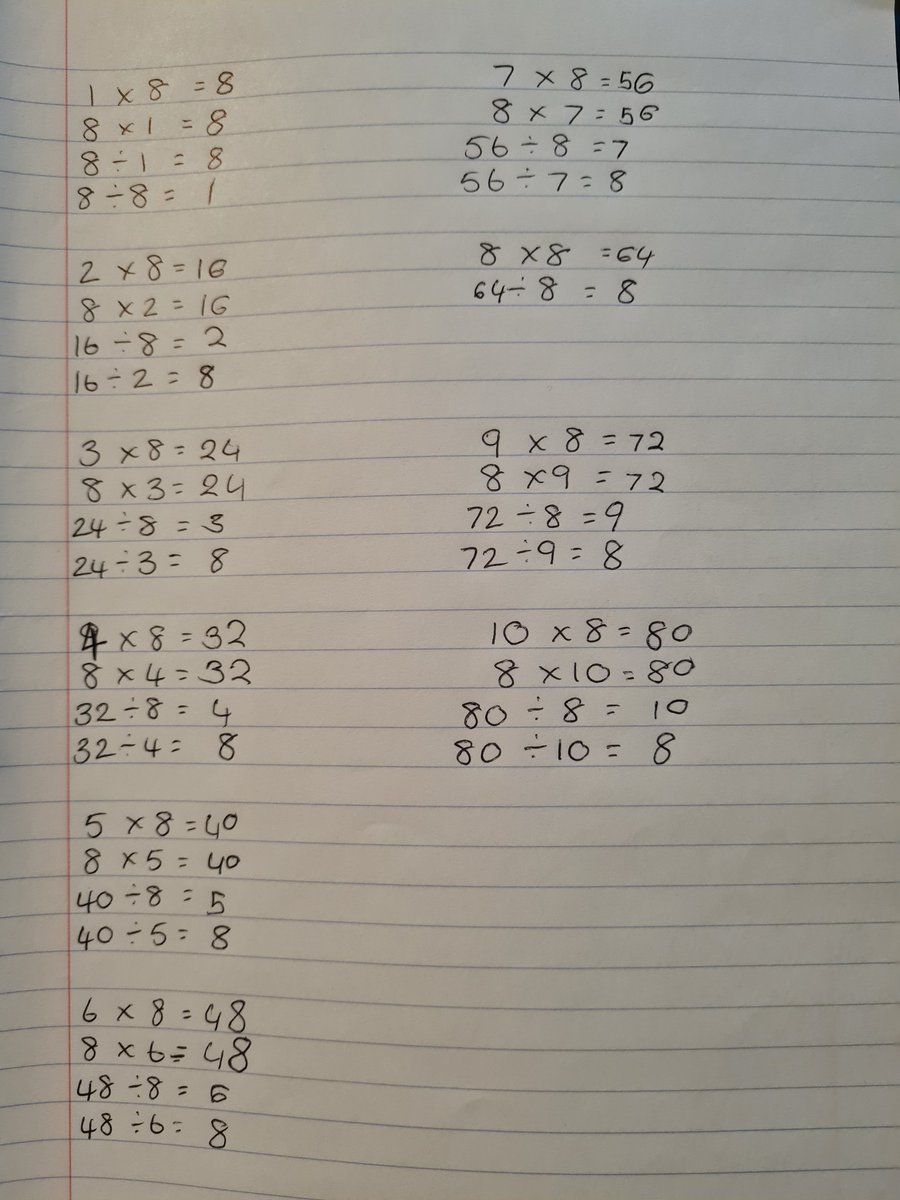 1 × 8 = 8
8 × 1 = 8
8 ÷ 1 = 8
8 ÷ 8 = 1
2 × 8 = 16
8 × 2 = 16
16 ÷ 8 = 2
16 ÷ 2 = 8
3 × 8 = 24
8 × 3 = 24
24 ÷ 8 = 3
24 ÷ 3 = 8
4 × 8 = 32
8 × 4 = 32
32 ÷ 8 = 4
32 ÷ 4 = 8
5 × 8 = 40
8 × 5 = 40
40 ÷ 8 = 5
40 ÷ 5 = 8
6 × 8 = 48
8 × 6 = 48
48 ÷ 8 = 6
48 ÷ 6 = 8
7 × 8 = 56
8 × 7 = 56
56 ÷ 8 = 7
56 ÷ 7 = 8
8 × 8 = 64
64 ÷ 8 = 8
9 × 8 = 72
8 × 9 = 72
72 ÷ 8 = 9
72 ÷ 9 = 8
10 × 8 = 80
8 × 10 = 80
80 ÷ 8 = 10
80 ÷ 10 = 8